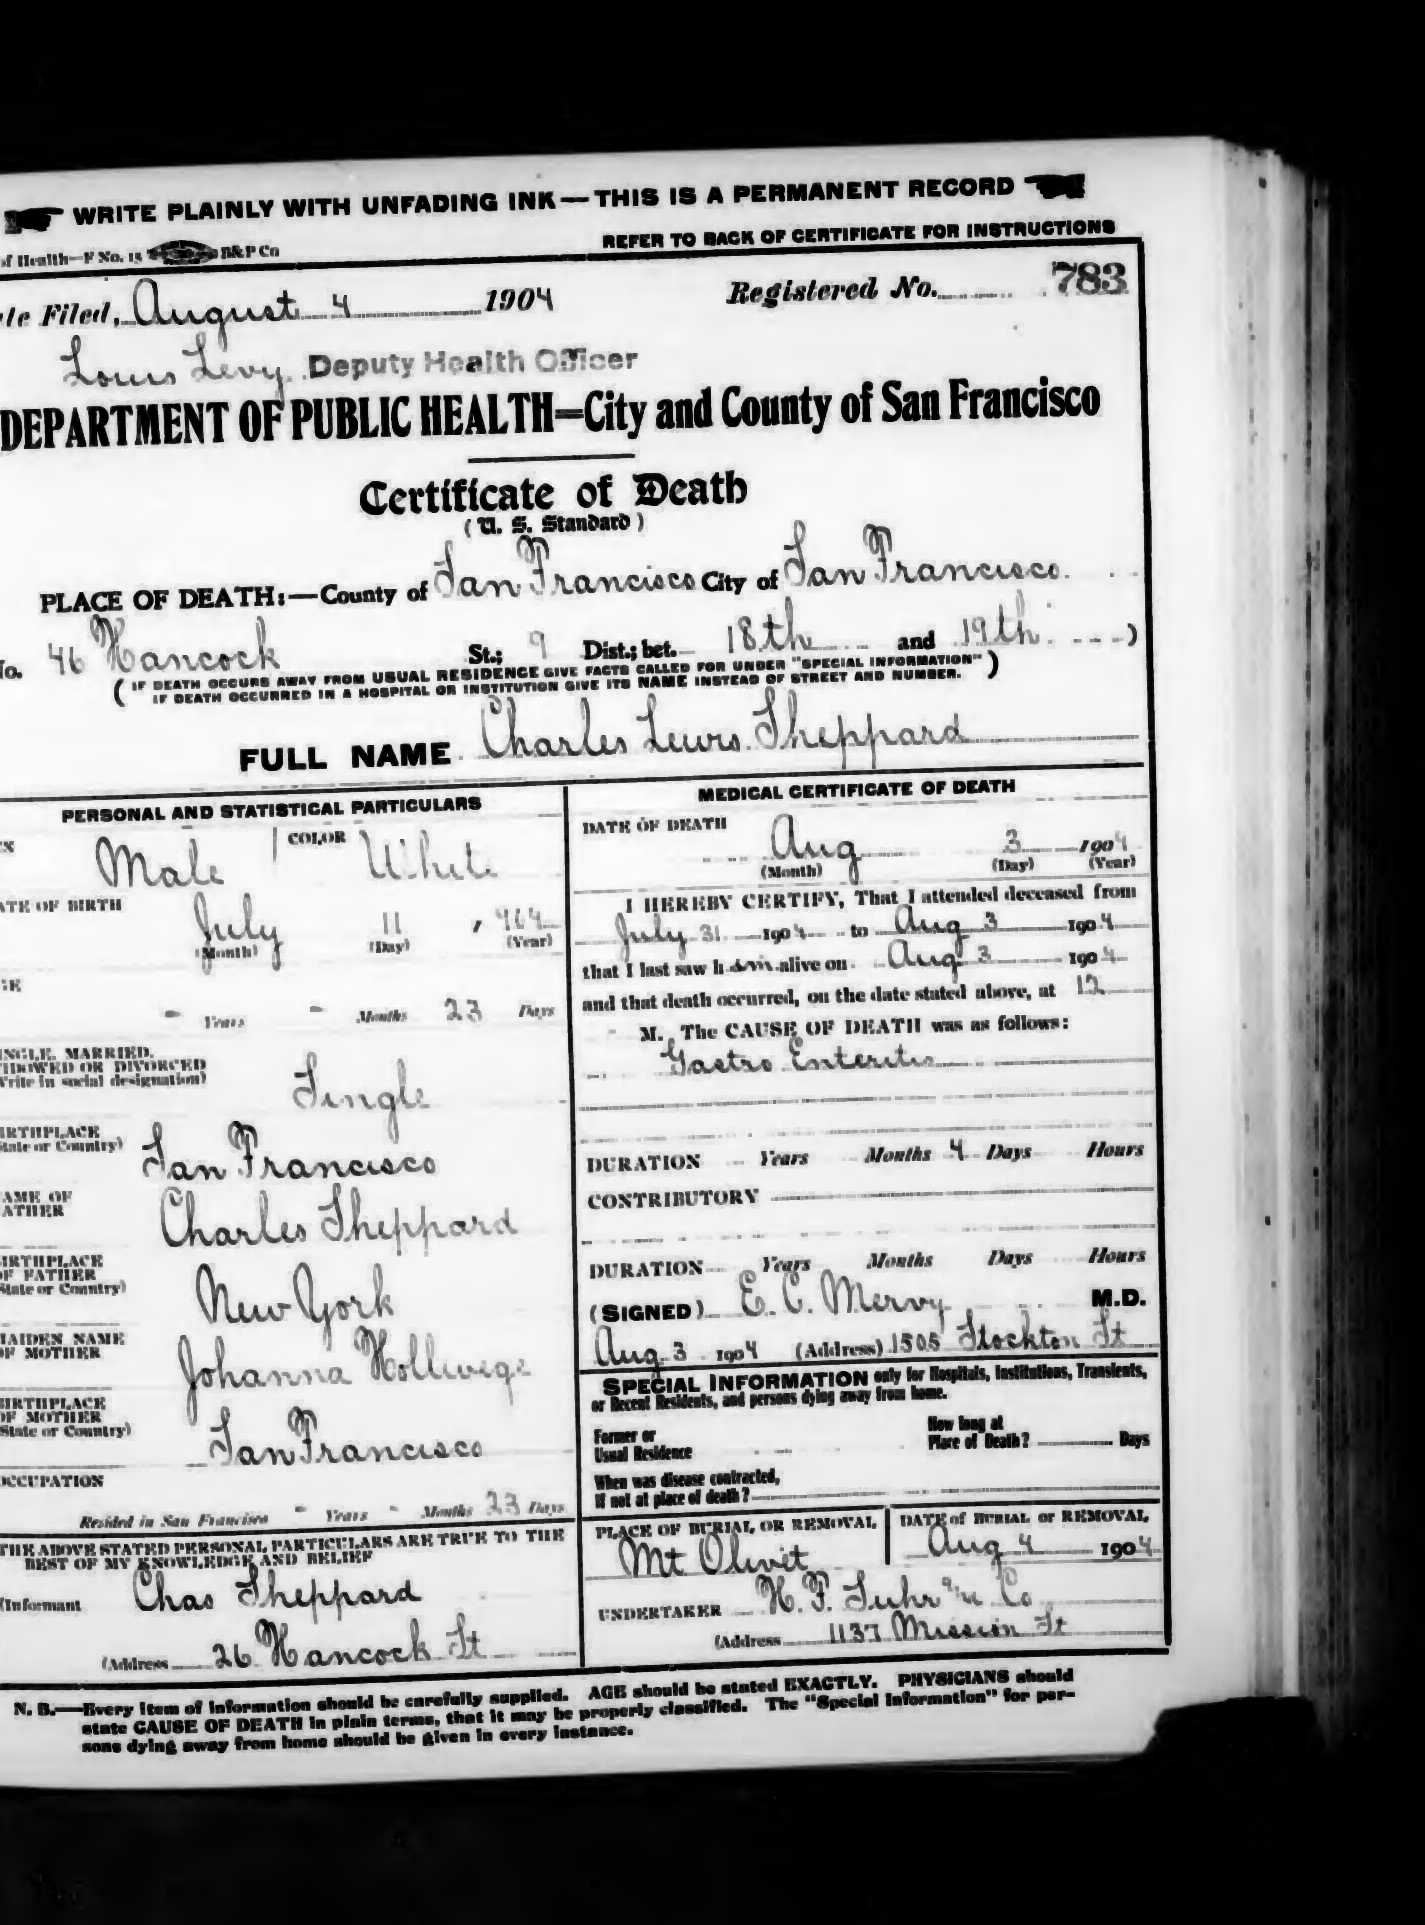 WRITE PLAINLY WITH UNFADING INK—THIS IS A PERMANENT RECORD
of Health—F No. 15 B&P Co REFER TO BACK OF CERTIFICATE FOR INSTRUCTIONS
te Filed, August 4 1904 Registered No. 783
Louis Levy. Deputy Health Officer
DEPARTMENT OF PUBLIC HEALTH=City and County of San Francisco
Certificate of Death
(U. S. Standard)
PLACE OF DEATH:—County of San Francisco City of San Francisco
No. 46 Hancock St.; 9 Dist.; bet. 18th and 19th )
( IF DEATH OCCURS AWAY FROM USUAL RESIDENCE GIVE FACTS CALLED FOR UNDER "SPECIAL INFORMATION" )
IF DEATH OCCURRED IN A HOSPITAL OR INSTITUTION GIVE ITS NAME INSTEAD OF STREET AND NUMBER.
FULL NAME Charles Lewis Sheppard
PERSONAL AND STATISTICAL PARTICULARS
EX Male COLOR White
ATE OF BIRTH
July 11 , 1904
(Month) (Day) (Year)
GE
- Years - Months 23 Days
INGLE, MARRIED,
IDOWED OR DIVORCED
Write in social designation) Single
IRTHPLACE
State or Country) San Francisco
AME OF
ATHER Charles Sheppard
IRTHPLACE
OF FATHER
State or Country) New York
MAIDEN NAME
OF MOTHER Johanna Hollwege
BIRTHPLACE
OF MOTHER
State or Country) San Francisco
OCCUPATION
Resided in San Francisco - Years - Months 23 Days
THE ABOVE STATED PERSONAL PARTICULARS ARE TRUE TO THE
BEST OF MY KNOWLEDGE AND BELIEF
(Informant Chas Sheppard
(Address 26 Hancock St
MEDICAL CERTIFICATE OF DEATH
DATE OF DEATH
Aug 3 1904
(Month) (Day) (Year)
I HEREBY CERTIFY, That I attended deceased from
July 31 1904 to Aug 3 1904
that I last saw him alive on Aug 3 1904
and that death occurred, on the date stated above, at 12
M. The CAUSE OF DEATH was as follows:
Gastro Enteritis
DURATION Years Months 4 Days Hours
CONTRIBUTORY
DURATION Years Months Days Hours
(SIGNED) E. C. Mervy M.D.
Aug 3 1904 (Address) 1505 Stockton St
SPECIAL INFORMATION only for Hospitals, Institutions, Transients,
or Recent Residents, and persons dying away from home.
Former or
Usual Residence
How long at
Place of Death? Days
When was disease contracted,
If not at place of death?
PLACE OF BURIAL OR REMOVAL
Mt Olivit
DATE of BURIAL or REMOVAL
Aug 4 1904
UNDERTAKER H. F. Suhr & Co
(Address 1137 Mission St
N. B.—Every item of information should be carefully supplied. AGE should be stated EXACTLY. PHYSICIANS should
state CAUSE OF DEATH in plain terms, that it may be properly classified. The "Special Information" for per-
sons dying away from home should be given in every instance.